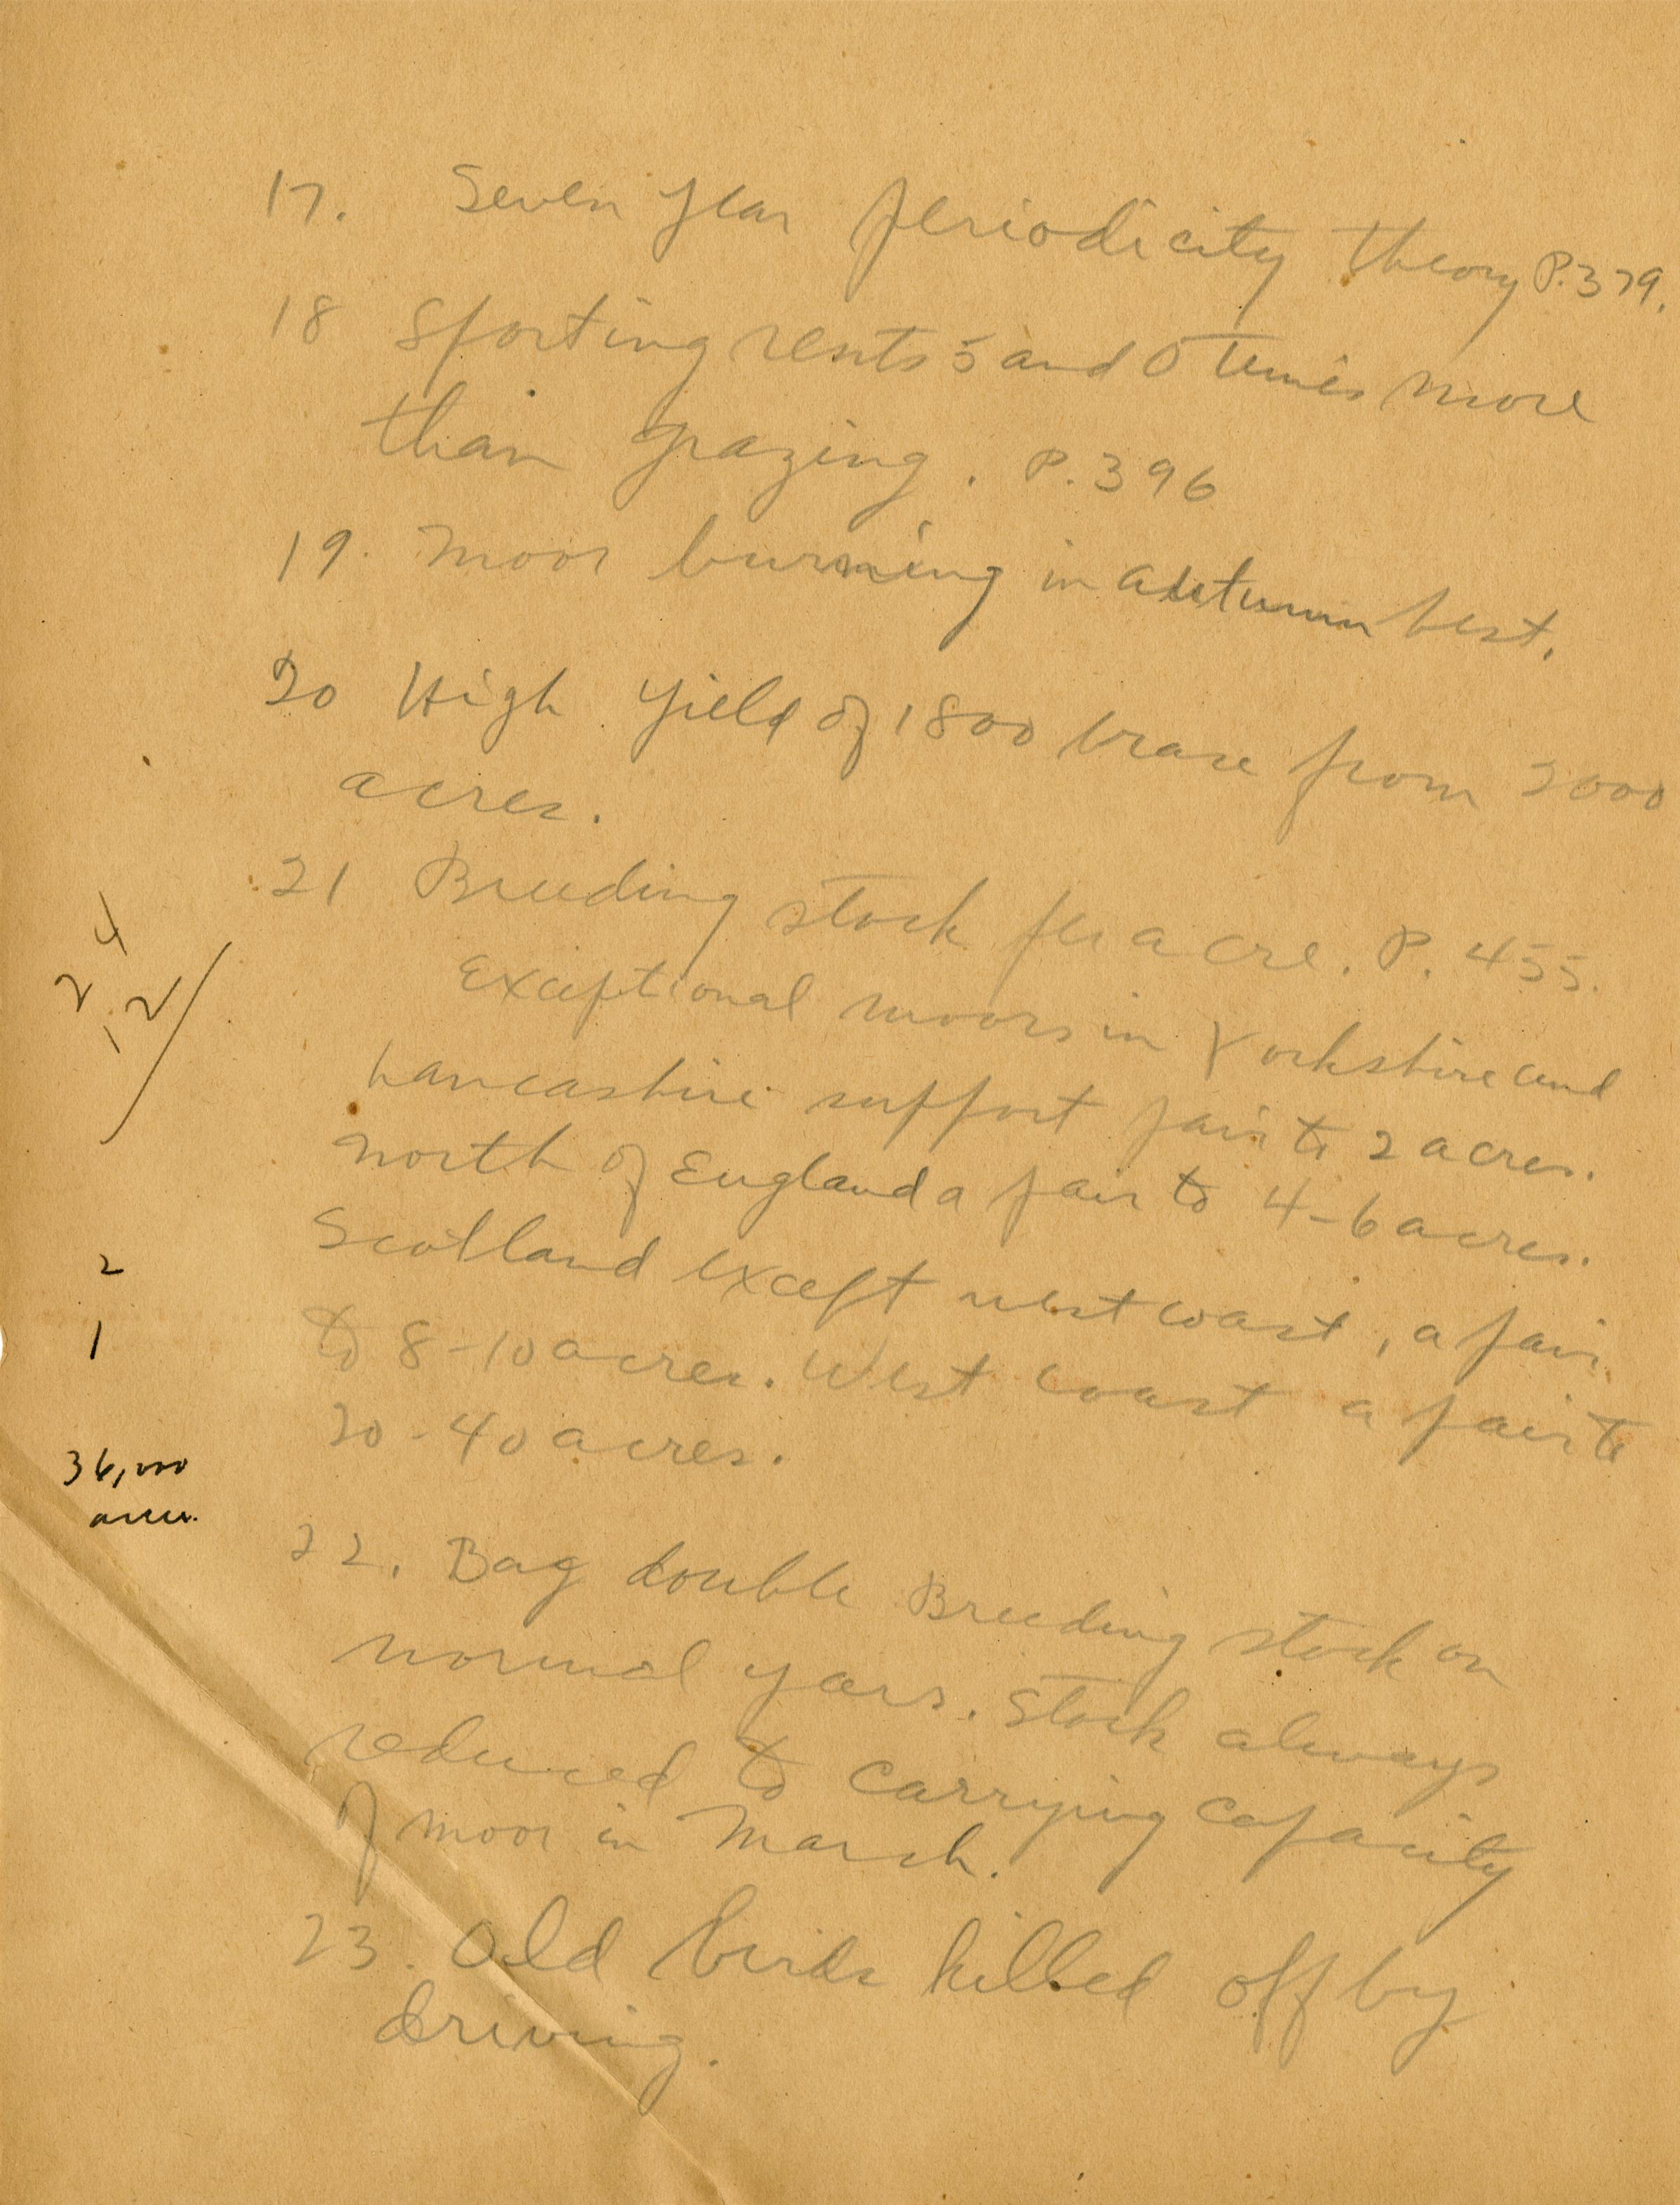 17. Seven year periodicity theory P. 379.
18 Sporting rents 5 and 0 times more
than grazing. P. 396
19. Moor burning in autumn best.
20 High yield of 1800 brace from 2000
acres.
21 Breeding stock per acre. P. 455.
Exceptional moors in Yorkshire and
Lancashire support pair to 2 acres.
North of England a pair to 4-6 acres.
Scotland except west coast, a pair
to 8-10 acres. West coast a pair to
30-40 acres.
22. Bag double Breeding stock on
normal years. Stock always
reduced to carrying capacity
of moor in March.
23. Old birds killed off by
driving.
4
2
12
2
1
36,000
acres.